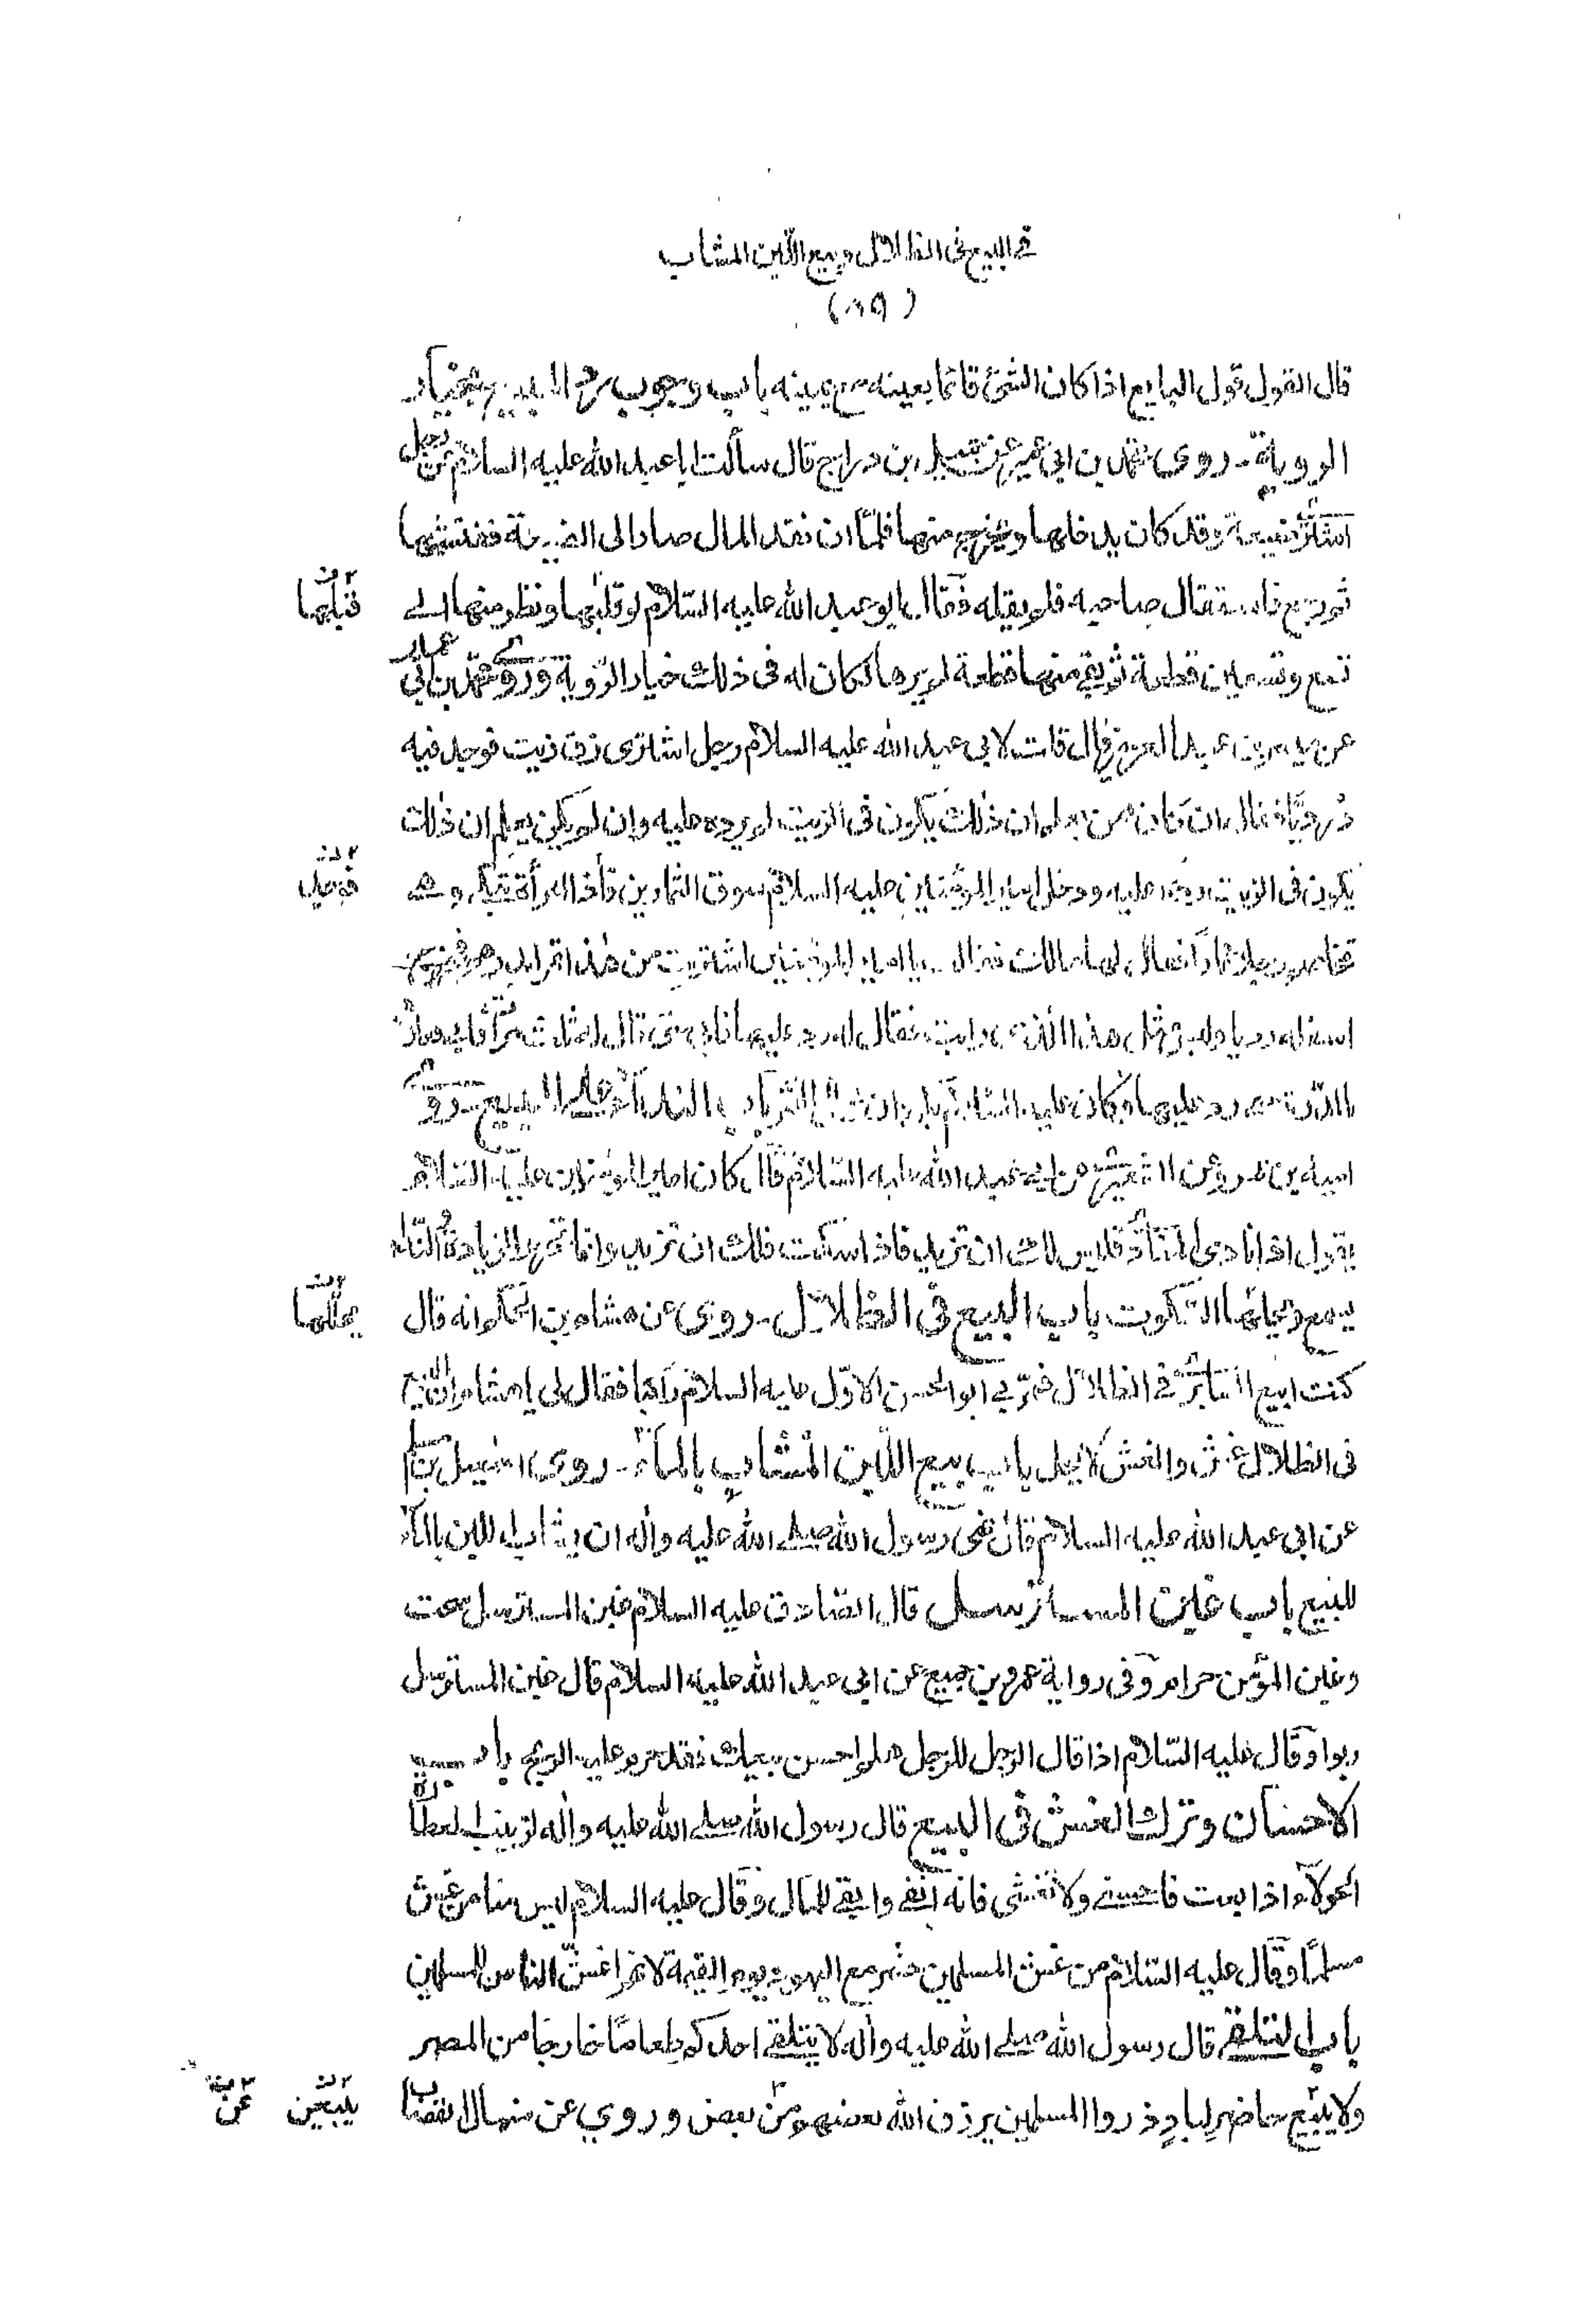 في البيع في الظلال وبيع اللبن المشاب
(٨٩)
قال القول قول البايع اذا كان الشئ قائما بعينه مع يمينه باب وجوب رد المبيع بخيار
الروية ـ روى محمد بن ابي عمير عن جميل بن دراج قال سألت ابا عبد الله عليه السلام عن رجل
اشترى ضيعة وقد كان يدخلها ويخرج منها فلما ان نقد المال صار الى الضيعة ففتشها
ثم رجع فاستقال صاحبه فلم يقله فقال ابو عبد الله عليه السلام لو قلبها ونظر منها الى
قبلها
تسع وتسعين قطعة ثم بقى منها قطعة لم يرها لكان له فى ذلك خيار الروية وروى محمد بن ابي عمير
عن عبد العزيز قال قلت لابي عبد الله عليه السلام رجل اشترى زق زيت فوجد فيه
درديا فقال ان كان من يعلم ان ذلك يكون فى الزيت لم يرده عليه وان لم يكن يعلم ان ذلك
يكون فى الزيت رده عليه ودخل امير المؤمنين عليه السلام سوق التمارين فاذا امرأة تبكى وهى
فوجد
تخاصم رجلا تمارا فقال لها مالك فقالت يا امير المؤمنين اشتريت من هذا تمرا بدرهم فخرج
اسفله رديا وليس مثل هذا الذى رايت فقال له رد عليها فابى حتى قال له ثلث مرات فابى فعلاه
بالدرة حتى رد عليها وكان عليه السلام يكره ان يجلل التمر باب النداء على المبيع ـ روى
امية بن عمرو عن الشعيرى عن ابي عبد الله عليه السلام قال كان امير المؤمنين عليه السلام
يقول اذا نادى المنادى فليس لك ان تزيد فاذا سكت فلك ان تزيد وانما تحرم الزيادة والنداء
يسمع ويحلها السكوت باب البيع فى الظلال ـ روى عن هشام بن الحكم انه قال
يحللها
كنت ابيع السابرى فى الظلال فمر بى ابو الحسن الاول عليه السلام راكبا فقال لى يا هشام ان البيع
فى الظلال غش والغش لا يحل باب بيع اللبن المشاب بالماء ـ روى اسمعيل بن مسلم
عن ابى عبد الله عليه السلام قال نهى رسول الله صلى الله عليه واله ان يشاب اللبن بالماء
للبيع باب غبن المسترسل قال الصادق عليه السلام غبن المسترسل سحت
وغبن المؤمن حرام وفى رواية عمرو بن جميع عن ابى عبد الله عليه السلام قال غبن المسترسل
ربوا وقال عليه السلام اذا قال الرجل للرجل هلم احسن بيعك فقد حرم عليه الربح باب
الاحسان وترك الغش فى البيع قال رسول الله صلى الله عليه واله لزينب العطارة
الحولاء اذا بعت فاحسنى ولا تغشى فانه انقى وابقى للمال وقال عليه السلام ليس منا من غش
مسلما وقال عليه السلام من غش المسلمين حشر مع اليهود يوم القيمة لانهم اغش الناس للمسلمين
باب التلقى قال رسول الله صلى الله عليه واله لا يتلقى احدكم طعاما خارجا من المصر
ولا يبيع حاضر لباد ذروا المسلمين يرزق الله بعضهم من بعض وروي عن منهال القصاب
يبيعن عن